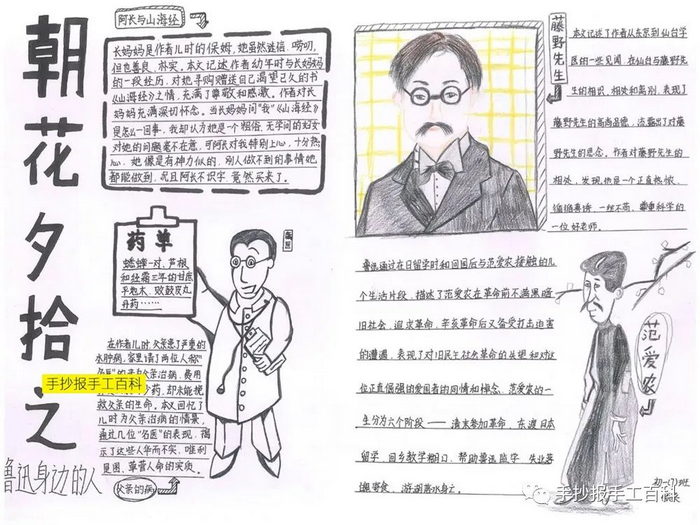 朝花夕拾之
鲁迅身边的人
阿长与山海经
长妈妈是作者儿时的保姆,她虽然迷信、唠叨,
但也善良、朴实。本文记述作者幼年时与长妈妈
的一段经历,对她寻购赠送自己渴望已久的书
《山海经》之情,充满了尊敬和感激。作者对长
妈妈充满深切怀念。当长妈妈问"我"《山海经》
是怎么一回事,我却认为她是个粗俗、无学问的妇女
对她的问题毫不在意,可阿长对我特别上心,十分热
心,她像是有神力似的,别人做不到的事情她
都能做到,况且阿长不识字,竟然买来了。
药单
蟋蟀一对、芦根
和经霜三年的甘蔗
平地木、败鼓皮丸
丹药……
在作者儿时父亲患了严重的
水肿病,家里请了两位人称"
父亲治病,费用
药,却未能挽
救父亲的生命。本文回忆了
儿时为父亲治病的情景,
通过几位"名医"的表现,揭
示了这些人华而不实、唯利
是图、草菅人命的实质。
父亲的病
手抄报手工百科
藤野先生
本文记述了作者从东京到仙台学
医的一些见闻,在仙台与藤野先
生的相识、相处和离别,表现了
藤野先生的高尚品德,流露出了对藤
野先生的思念。作者对藤野先生的
相处,发现他是一个正直热忱、
治学严谨、一丝不苟、尊重科学的
一位好老师。
范爱农
鲁迅通过在日留学时和回国后与范爱农接触的几
个生活片段,描述了范爱农在革命前不满黑暗
旧社会,追求革命,辛亥革命后又备受打击迫害
的遭遇,表现了对旧民主社会革命的失望和对这
位正直倔强的爱国者的同情和悼念。范爱农的一
生分为六个阶段——清末参加革命、东渡日本
留学、回乡教学糊口、帮助鲁迅监学、失业落
魄寄食、游湖落水身亡。
初一(7)班
手抄报手工百科